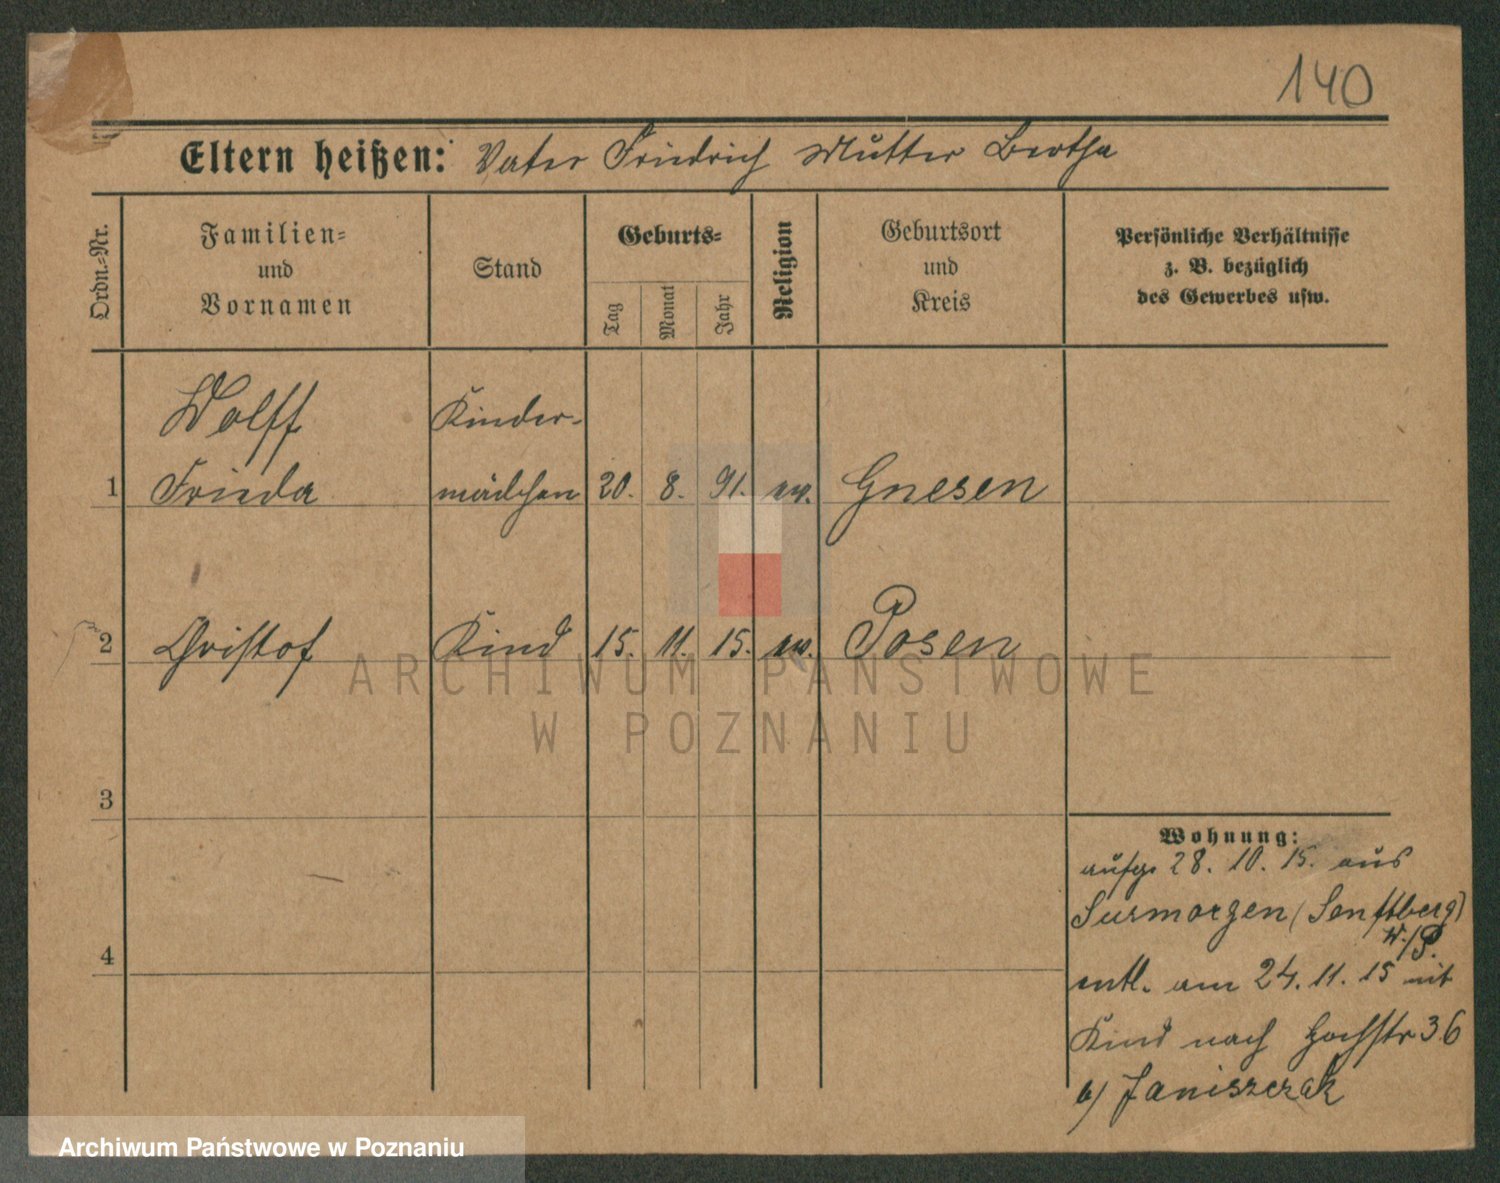 140
Eltern heißen: Vater Friedrich Mutter Bertha
Ordn.-Nr.
Familien-
und
Vornamen
Stand
Geburts-
Tag
Monat
Jahr
Religion
Geburtsort
und
Kreis
Persönliche Verhältnisse
z. B. bezüglich
des Gewerbes usw.
Wolff Kinder-
1 Frieda mädchen 20. 8. 91. ev. Gnesen
2 Christof Kind 15. 11. 15. ev. Posen
ARCHIWUM PAŃSTWOWE
W POZNANIU
3
4
Wohnung:
aufg. 28. 10. 15. aus
(Senftberg)
W./P.
entl. am 24. 11. 15 mit
Kind nach Hochstr 36
b/ Janiszczak
Archiwum Państwowe w Poznaniu